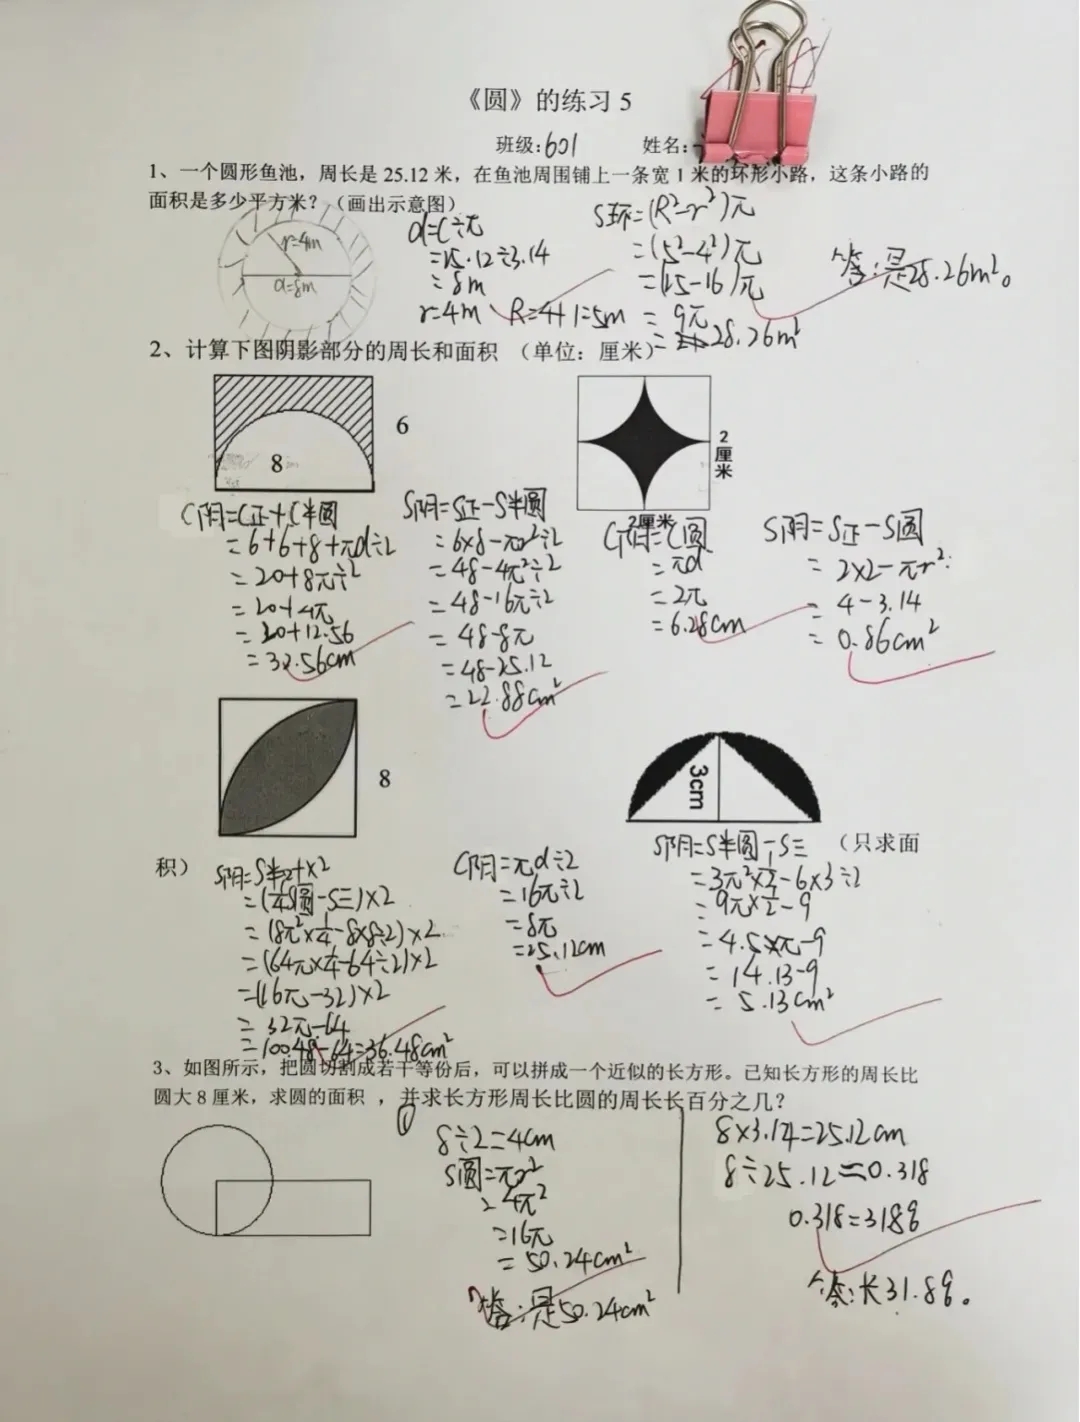 《圆》的练习 5
班级:601 姓名:
1、一个圆形鱼池，周长是 25.12 米，在鱼池周围铺上一条宽 1 米的环形小路，这条小路的
面积是多少平方米？（画出示意图）
r=4m
d=8m
d=C÷π
=25.12÷3.14
=8m
r=4m R=4+1=5m
S环=(R²-r²)π
=(5²-4²)π
=(25-16)π
=9π
=28.26m²
答:是28.26m²。
2、计算下图阴影部分的周长和面积 （单位：厘米）
6
8
2
厘
米
2厘米
C阴=C正+C半圆
=6+6+8+πd÷2
=20+8π÷2
=20+4π
=20+12.56
=32.56cm
S阴=S正-S半圆
=6×8-πr²÷2
=48-4π²÷2
=48-16π÷2
=48-8π
=48-25.12
=22.88cm²
C阴=C圆
=πd
=2π
=6.28cm
S阴=S正-S圆
=2×2-πr²
=4-3.14
=0.86cm²
8
3cm
（只求面
积）
=(¼S圆-S三)×2
=(8π²×¼-8×8÷2)×2
=(64π×¼-64÷2)×2
=(16π-32)×2
=32π-64
=100.48-64=36.48cm²
C阴=πd÷2
=16π÷2
=8π
=25.12cm
S阴=S半圆-S三
=3π²×½-6×3÷2
=9π×½-9
=4.5×π-9
=14.13-9
=5.13cm²
3、如图所示，把圆切割成若干等份后，可以拼成一个近似的长方形。已知长方形的周长比
圆大 8 厘米，求圆的面积 ，并求长方形周长比圆的周长长百分之几？
①
8÷2=4cm
S圆=πr²
=4π²
=16π
=50.24cm²
答:是50.24cm²
8×3.14=25.12cm
8÷25.12≈0.318
0.318=31.8%
答:长31.8%。